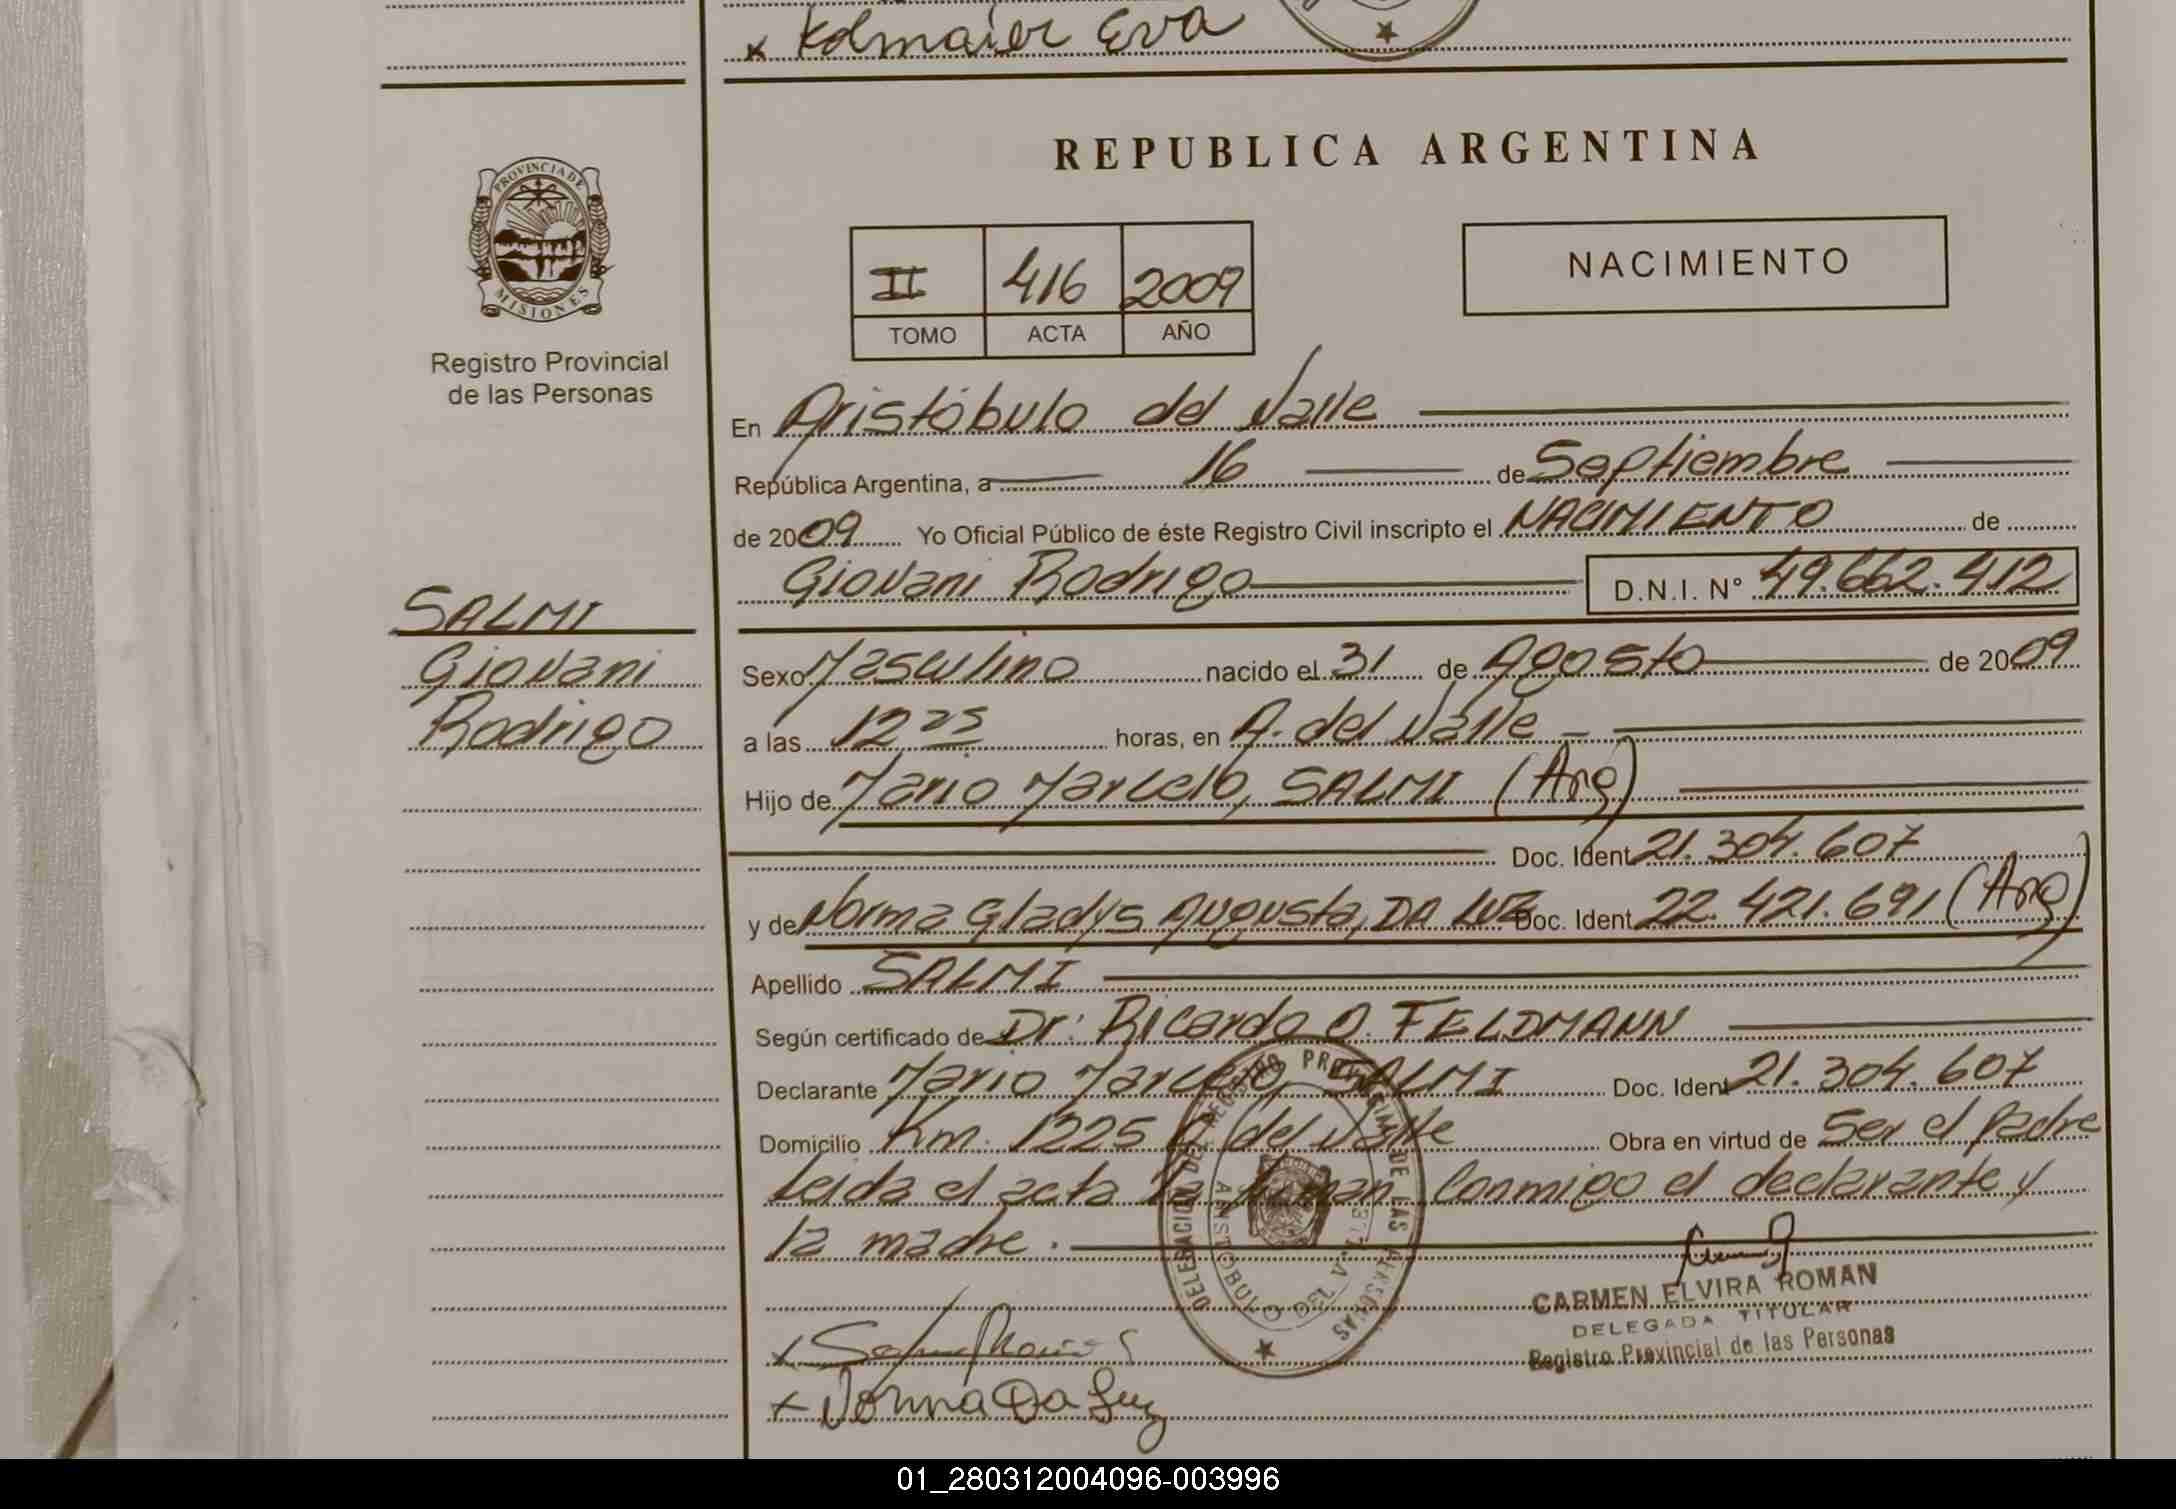 x Kolmaier Eva
REPUBLICA ARGENTINA
PROVINCIA DE
MISIONES
Registro Provincial
de las Personas
NACIMIENTO
II 416 2009
TOMO ACTA AÑO
En Aristóbulo del Valle
República Argentina, a 16 de Septiembre
de 2009 Yo Oficial Público de éste Registro Civil inscripto el NACIMIENTO de
Giovani Rodrigo D.N.I. N° 49.662.412
SALMI
Giovani
Rodrigo
Sexo Masculino nacido el 31 de Agosto de 2009
a las 12 25 horas, en A. del Valle
Hijo de Mario Marcelo, SALMI (Arg)
Doc. Ident 21.304.607
y de Norma Gladys Augusta, DA LUZ Doc. Ident 22.421.691 (Arg)
Apellido SALMI
Según certificado de Dr: Ricardo O. FELDMANN
Declarante Mario Marcelo, SALMI Doc. Ident 21.304.607
Domicilio Km. 1225 A. del Valle Obra en virtud de ser el padre
Leída el acta la firman conmigo el declarante y
la madre.
DELEGACION DEL REGISTRO PROVINCIAL DE LAS PERSONAS
ARISTOBULO DEL VALLE
CARMEN ELVIRA ROMAN
DELEGADA TITULAR
Registro Provincial de las Personas
x Norma Da Luz
01_280312004096-003996